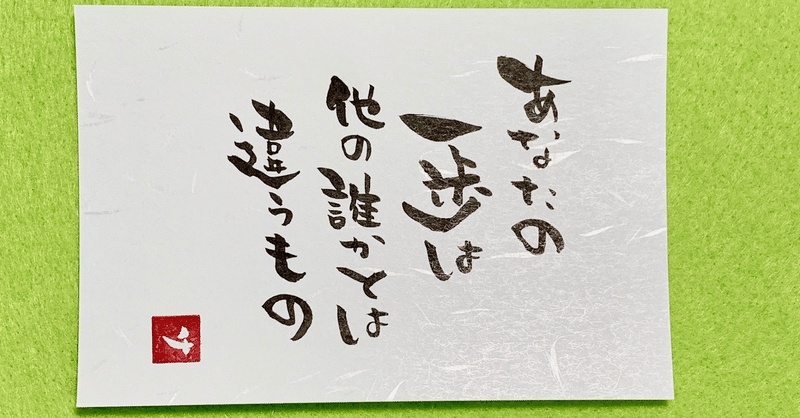 あなたの
一歩は
他の誰かとは
違うもの